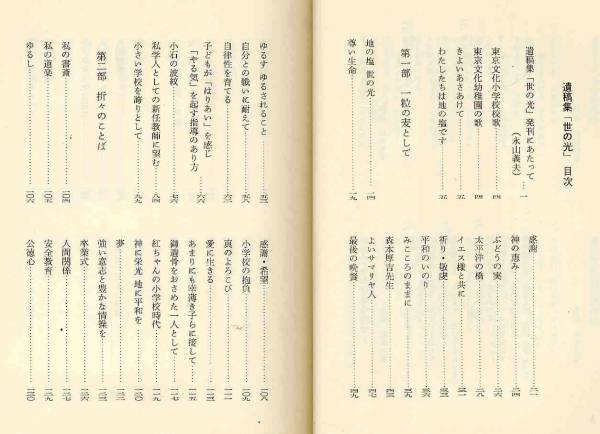 遺稿集「世の光」 目次
遺稿集「世の光」発刊にあたって……一
(永山義夫)
東京文化小学校校歌……四
東京文化幼稚園の歌……四
きよいあさあけて……五
わたしたちは地の塩です……五
第一部 一粒の麦として
地の塩 世の光……一四
尊い生命……一九
感謝……
神の恵み……二四
ぶどうの実……
太平洋の橋……
イエス様と共に……
祈り・敬虔……
平和のいのり……
みこころのままに……
森本厚吉先生……
よいサマリヤ人……
最後の晩餐……四九
ゆるす ゆるされること……
自分との戦いに耐えて……
自律性を育てる……
子どもが「はりあい」を感じ
「やる気」を起す指導のあり方……六六
小石の波紋……七六
私学人としての新任教師に望む……八四
小さい学校を誇りとして……九九
第二部 折々のことば
私の書斎……一〇四
私の道楽……一〇五
ゆるし……一〇六
感謝・希望……一〇八
小学校の抱負……
真のよろこび……
愛に生きる……
あまりにも幸薄き子らに接して……
御遺骨をおさめた一人として……
紅ちゃんの小学校時代……
神に栄光 地に平和を……
夢……
強い意志と豊かな情操を……
卒業式……
人間関係……
安全教育……
公徳心……